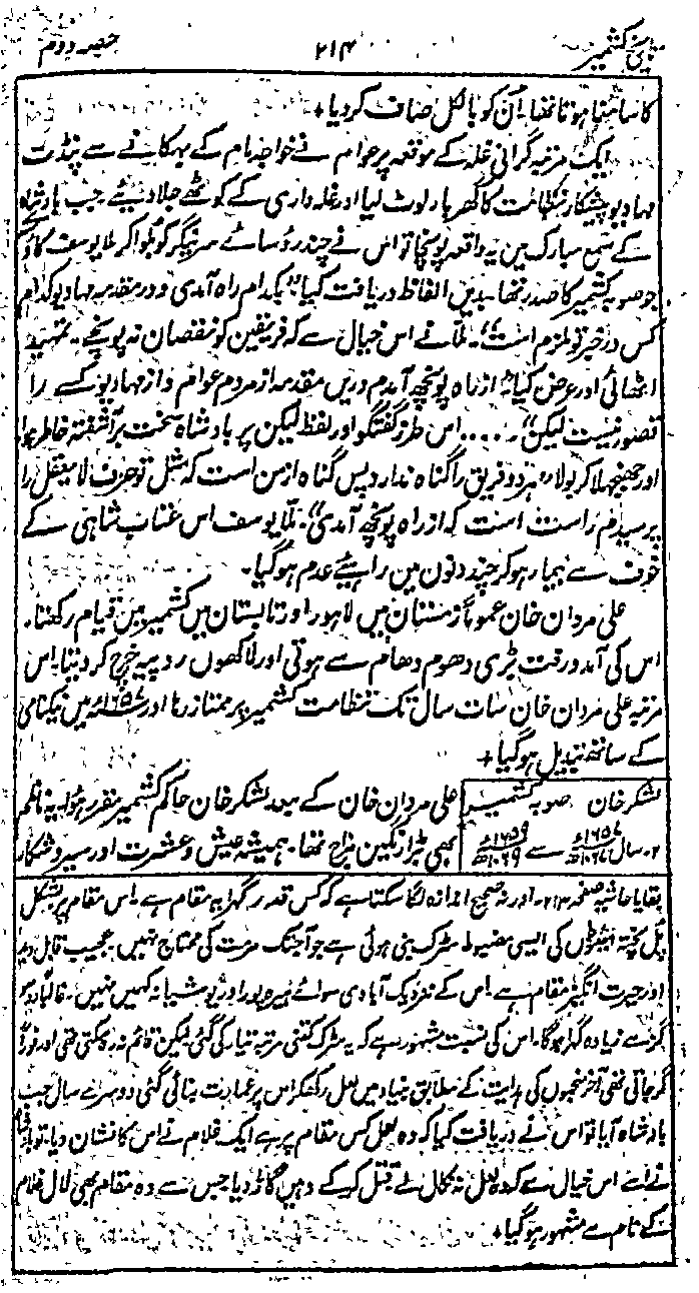 تاریخ کشمیر ۲۱۴ حصہ دوم
کا سامنا ہوتا تھا۔ اُن کو بالکل صاف کر دیا +
ایک مرتبہ گرانی غلہ کے موقعہ پر عوام نے خواجہ ہام کے بہکانے سے پنڈت
مہادیو پیشکار نظامت کا گھر بار لوٹ لیا اور غلہ داری کے کوٹھے جلا دیئے جب بادشاہ
کے سمع مبارک میں یہ واقعہ پہونچا تو اس نے چند رؤسائے سرینگر کو بلوا کر ملا یوسف کاؤ
جو صوبہ کشمیر کا صدر تھا۔ بدیں الفاظ دریافت کیا "بکدام راہ آمدی و در مقدمہ مہادیو کدام
کس در خبر تو ملزم است"۔ ملّا نے اس خیال سے کہ فریقین کو نقصان نہ پہونچے۔ تمہید
اٹھائی اور عرض کیا "از راہ پونچھ آمدم دریں مقدمہ از مردم عوام و از مہادیو کسے را
قصور نیست لیکن"۔۔۔۔۔ اس طرز گفتگو اور لفظ لیکن پر بادشاہ سخت برآشفتہ خاطر ہوا
اور جھنجھلا کر بولا "ہر دو فریق را گناہ ندارد پس گناہ از من است کہ مثل تو حرف لا یعقل را
پرسیدم راست است کہ از راہ پونچھ آمدی"۔ ملّا یوسف اس عتاب شاہی کے
خوف سے بیمار ہو کر چند دنوں میں راہیے عدم ہو گیا۔
علی مردان خان عموماً زمستان میں لاہور اور تابستان میں کشمیر میں قیام رکھتا۔
اس کی آمد و رفت بڑی دھوم دھام سے ہوتی اور لاکھوں روپیہ خرچ کر دیتا۔ اس
مرتبہ علی مردان خان سات سال تک نظامت کشمیر پر ممتاز رہا اور ۱۶۵۷ء میں نیکنامی
کے ساتھ تبدیل ہو گیا +
لشکر خان صوبہ کشمیر
۲۔ سال ۱۶۵۷ء ۱۰۶۷ھ سے ۱۶۵۹ء ۱۰۶۹ھ
علی مردان خان کے بعد لشکر خان حاکم کشمیر مقرر ہوا۔ یہ ناظم
بھی بڑا رنگین مزاج تھا۔ ہمیشہ عیش و عشرت اور سیر و شکار
بقایا حاشیہ صفحہ ۲۱۳۔ اور نہ صحیح اندازہ لگا سکتا ہے کہ کس قدر گہرا یہ مقام ہے۔ اس مقام پر بشکل
پل پختہ اینٹوں کی ایسی مضبوط سڑک بنی ہوئی ہے جو آجتک مرمت کی محتاج نہیں۔ عجیب قابل دید
اور حیرت انگیز مقام ہے۔ اس کے نزدیک آبادی سوائے ہیرہ پور اور ژیو شپیا نہ کہیں نہیں۔ غالباً دو سو
گز سے زیادہ گہرا ہوگا۔ اس کی نسبت مشہور ہے کہ یہ سڑک کتنی مرتبہ تیار کی گئی لیکن قائم نہ رہ سکتی تھی اور فوراً
گر جاتی تھی آخر نجومیوں کی ہدایت کے مطابق بنیاد میں لعل رکھکر اس پر عمارت بنائی گئی دوسرے سال جب
بادشاہ آیا تو اس نے دریافت کیا کہ وہ لعل کس مقام پر ہے ایک غلام نے اس کا نشان دیا۔ تو بادشاہ
نے اسے اس خیال سے کہ وہ لعل نہ نکال لے قتل کر کے وہیں گاڑ دیا جس سے وہ مقام بھی لال غلام
کے نام سے مشہور ہو گیا +